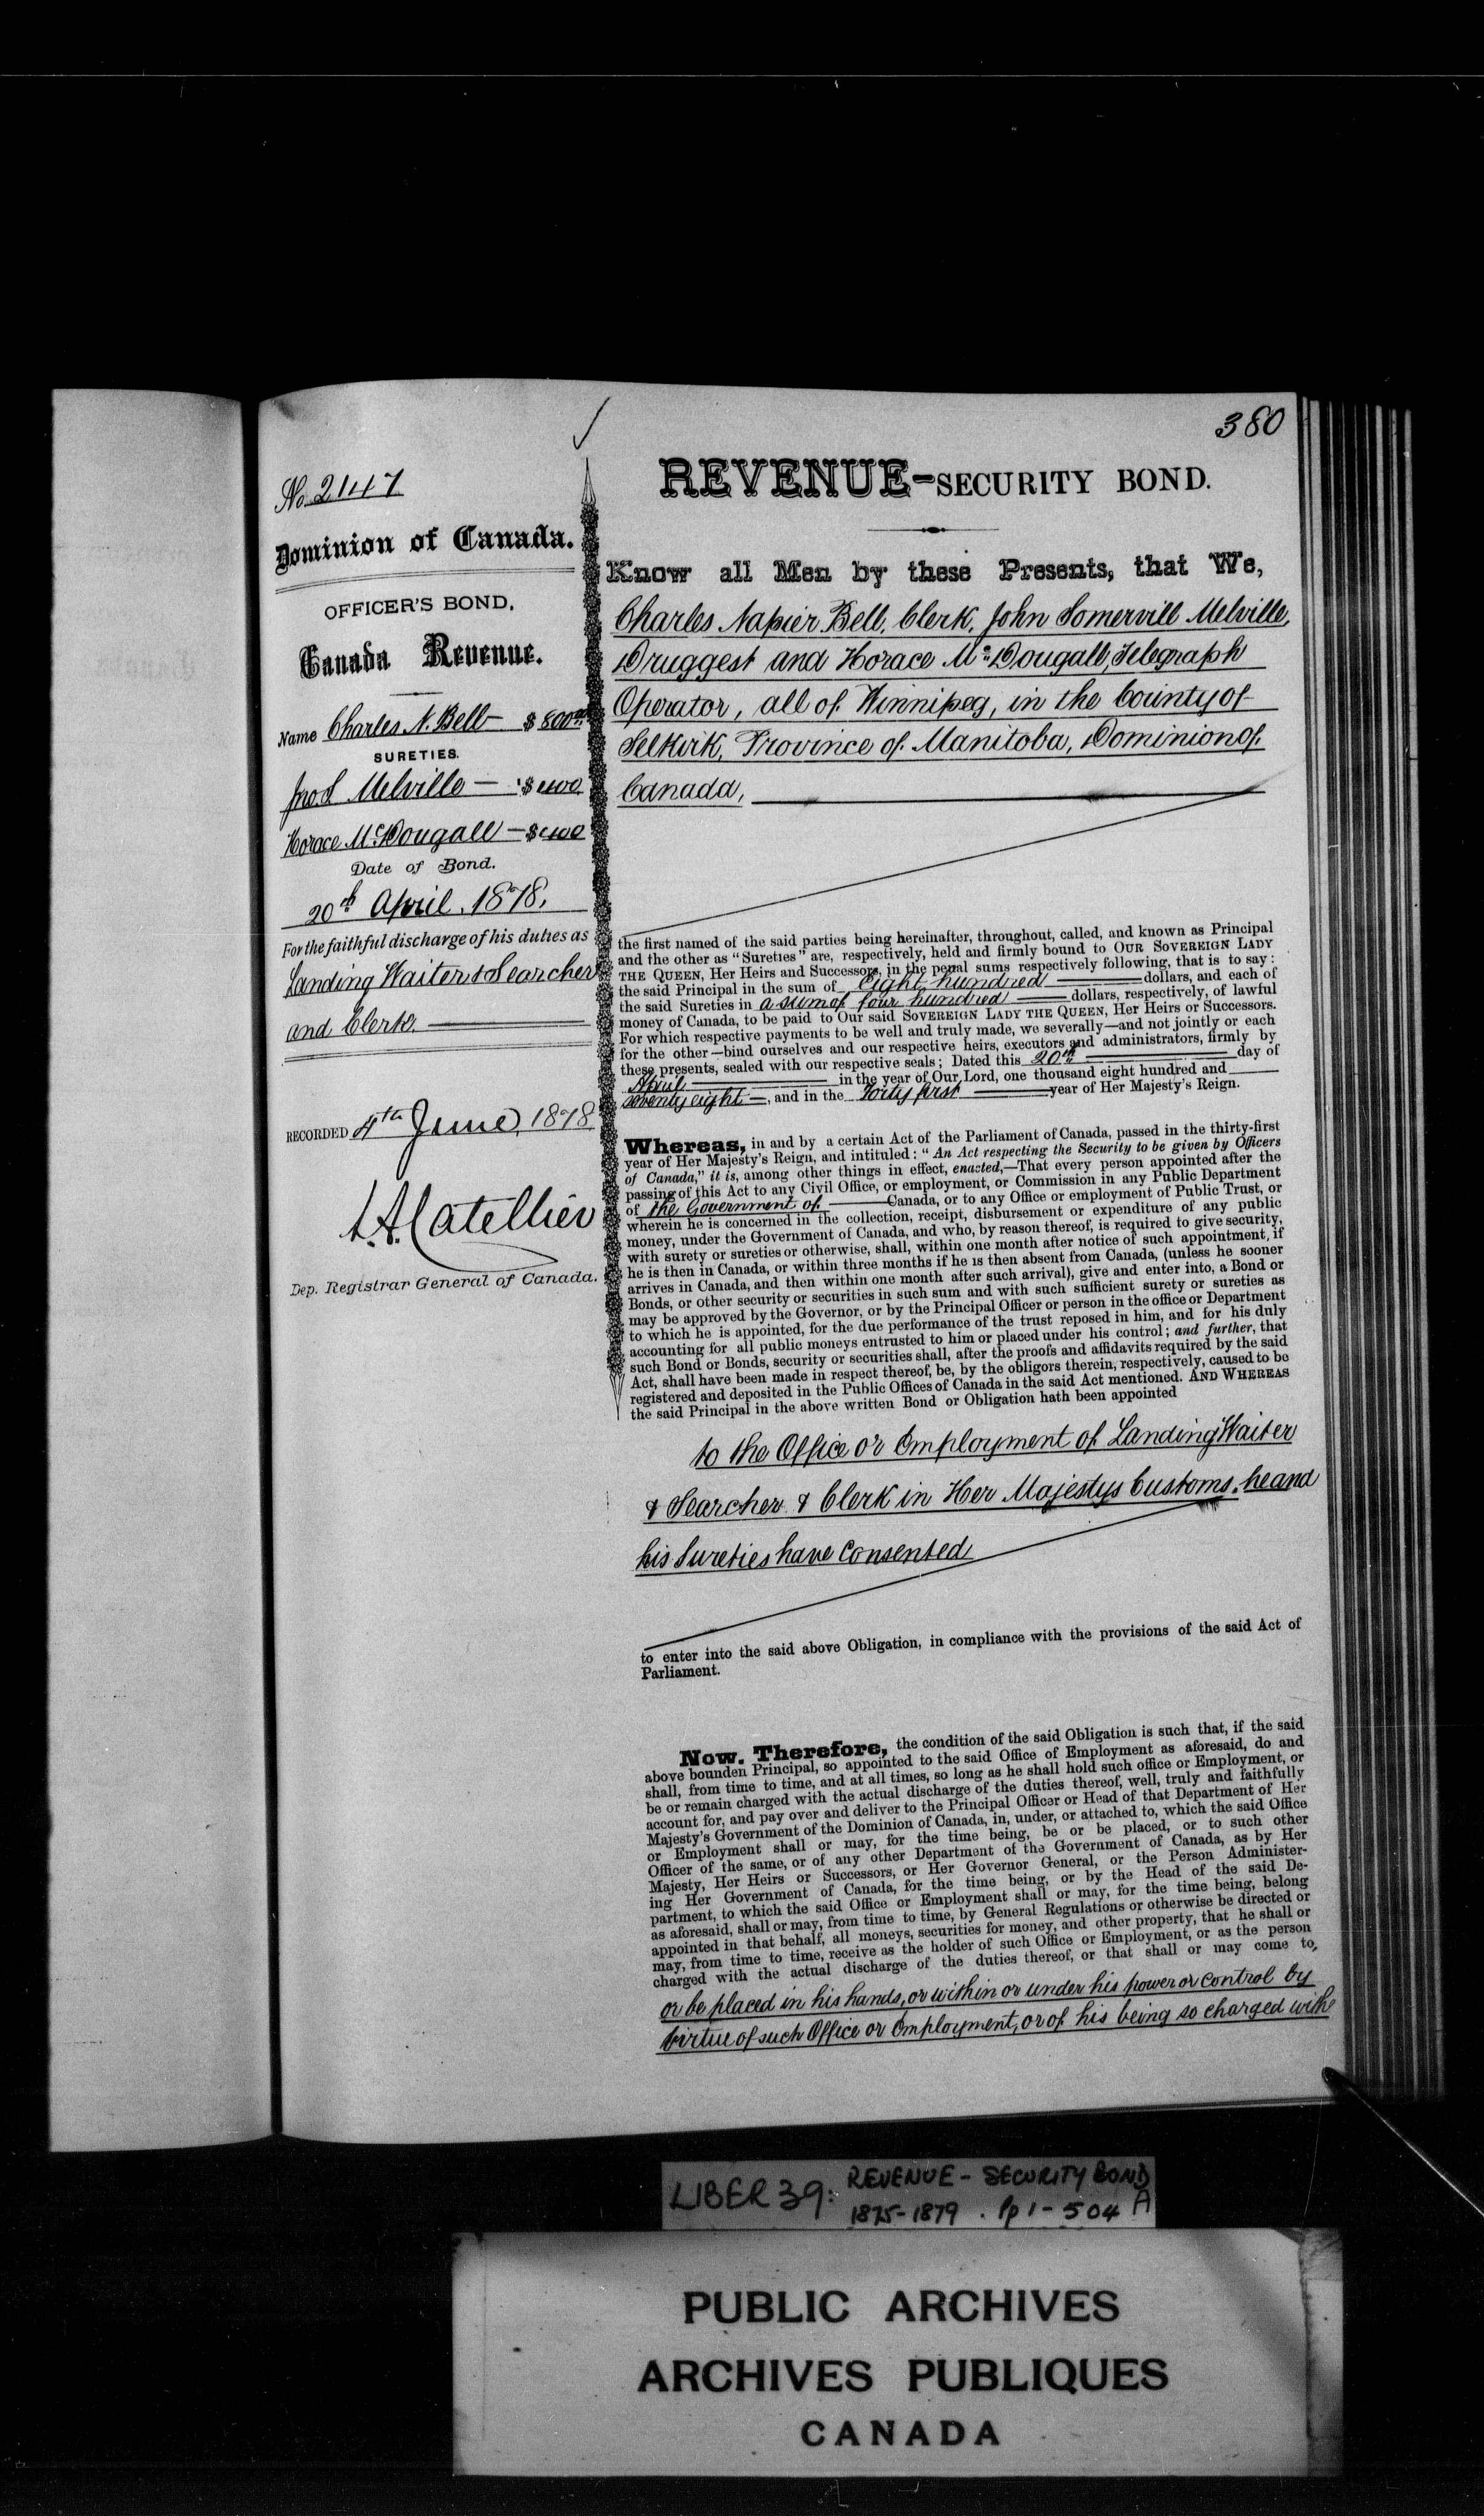 380
No. 2147
Dominion of Canada.
OFFICER'S BOND,
Canada Revenue.
Name Charles N. Bell — $800.00
SURETIES.
Jno S Melville — $400
Horace McDougall — $400
Date of Bond.
20th April, 1878,
For the faithful discharge of his duties as
Landing Waiter & Searcher
and Clerk.
RECORDED 4th June, 1878
L.A. Catellier
Dep. Registrar General of Canada.
REVENUE-SECURITY BOND.
Know all Men by these Presents, that We,
Charles Napier Bell, Clerk, John Somervill Melville,
Druggest and Horace McDougall, Telegraph
Operator, all of Winnipeg, in the County of
Selkirk, Province of Manitoba, Dominion of
Canada,
the first named of the said parties being hereinafter, throughout, called, and known as Principal
and the other as "Sureties" are, respectively, held and firmly bound to OUR SOVEREIGN LADY
THE QUEEN, Her Heirs and Successors, in the penal sums respectively following, that is to say:
the said Principal in the sum of Eight hundred dollars, and each of
the said Sureties in a sum of four hundred dollars, respectively, of lawful
money of Canada, to be paid to Our said SOVEREIGN LADY THE QUEEN, Her Heirs or Successors.
For which respective payments to be well and truly made, we severally—and not jointly or each
for the other—bind ourselves and our respective heirs, executors and administrators, firmly by
these presents, sealed with our respective seals; Dated this 20th day of
April in the year of Our Lord, one thousand eight hundred and
seventy eight —, and in the Forty first year of Her Majesty's Reign.
Whereas, in and by a certain Act of the Parliament of Canada, passed in the thirty-first
year of Her Majesty's Reign, and intituled: "An Act respecting the Security to be given by Officers
of Canada," it is, among other things in effect, enacted,—That every person appointed after the
passing of this Act to any Civil Office, or employment, or Commission in any Public Department
of the Government of Canada, or to any Office or employment of Public Trust, or
wherein he is concerned in the collection, receipt, disbursement or expenditure of any public
money, under the Government of Canada, and who, by reason thereof, is required to give security,
with surety or sureties or otherwise, shall, within one month after notice of such appointment, if
he is then in Canada, or within three months if he is then absent from Canada, (unless he sooner
arrives in Canada, and then within one month after such arrival), give and enter into, a Bond or
Bonds, or other security or securities in such sum and with such sufficient surety or sureties as
may be approved by the Governor, or by the Principal Officer or person in the office or Department
to which he is appointed, for the due performance of the trust reposed in him, and for his duly
accounting for all public moneys entrusted to him or placed under his control; and further, that
such Bond or Bonds, security or securities shall, after the proofs and affidavits required by the said
Act, shall have been made in respect thereof, be, by the obligors therein, respectively, caused to be
registered and deposited in the Public Offices of Canada in the said Act mentioned. AND WHEREAS
the said Principal in the above written Bond or Obligation hath been appointed
to the Office or Employment of Landing Waiter
& Searcher & Clerk in Her Majestys Customs, he and
his Sureties have consented
to enter into the said above Obligation, in compliance with the provisions of the said Act of
Parliament.
Now, Therefore, the condition of the said Obligation is such that, if the said
above bounden Principal, so appointed to the said Office of Employment as aforesaid, do and
shall, from time to time, and at all times, so long as he shall hold such office or Employment, or
be or remain charged with the actual discharge of the duties thereof, well, truly and faithfully
account for, and pay over and deliver to the Principal Officer or Head of that Department of Her
Majesty's Government of the Dominion of Canada, in, under, or attached to, which the said Office
or Employment shall or may, for the time being, be or be placed, or to such other
Officer of the same, or of any other Department of the Government of Canada, as by Her
Majesty, Her Heirs or Successors, or Her Governor General, or the Person Administer-
ing Her Government of Canada, for the time being, or by the Head of the said De-
partment, to which the said Office or Employment shall or may, for the time being, belong
as aforesaid, shall or may, from time to time, by General Regulations or otherwise be directed or
appointed in that behalf, all moneys, securities for money, and other property, that he shall or
may, from time to time, receive as the holder of such Office or Employment, or as the person
charged with the actual discharge of the duties thereof, or that shall or may come to,
or be placed in his hands, or within or under his power or control by
virtue of such Office or Employment, or of his being so charged with
LIBER 39: REVENUE - SECURITY BOND
1875-1879 . Pp 1-504 A
PUBLIC ARCHIVES
ARCHIVES PUBLIQUES
CANADA